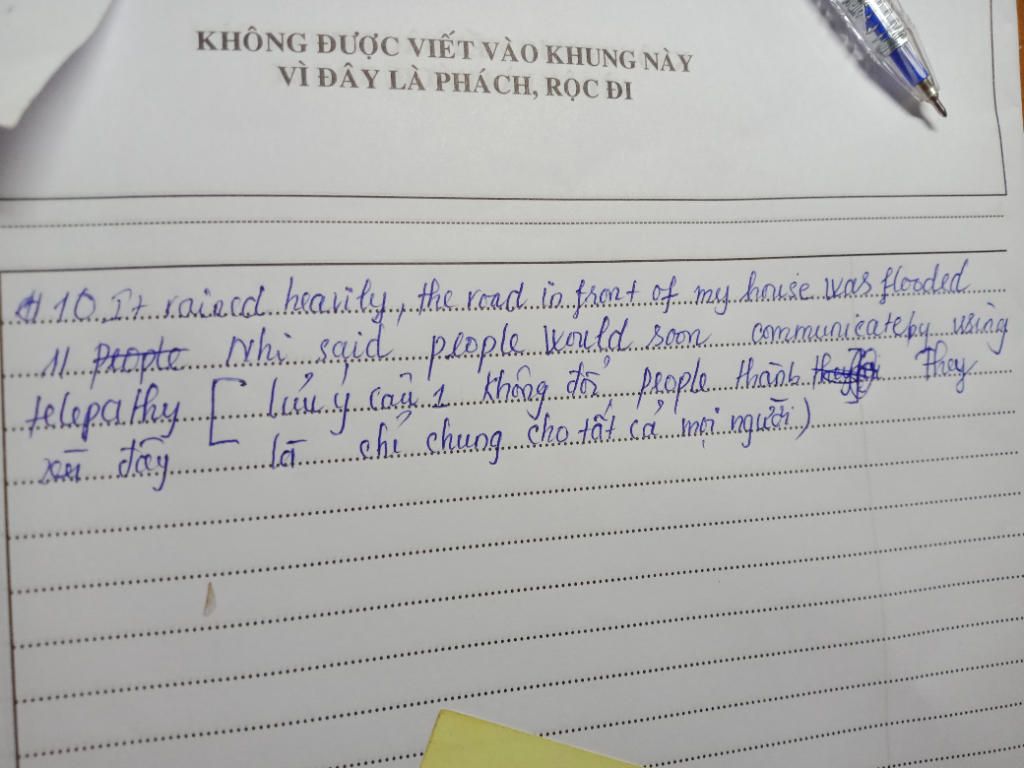 KHÔNG ĐƯỢC VIẾT VÀO KHUNG NÀY
VÌ ĐÂY LÀ PHÁCH, RỌC ĐI
10. It rained heavily, the road in front of my house was flooded
11 people Nhi said people would soon communicate by using
telepathy [ lưu ý câu 1 không đổi people thành they
đây là chỉ chung cho tất cả mọi người)